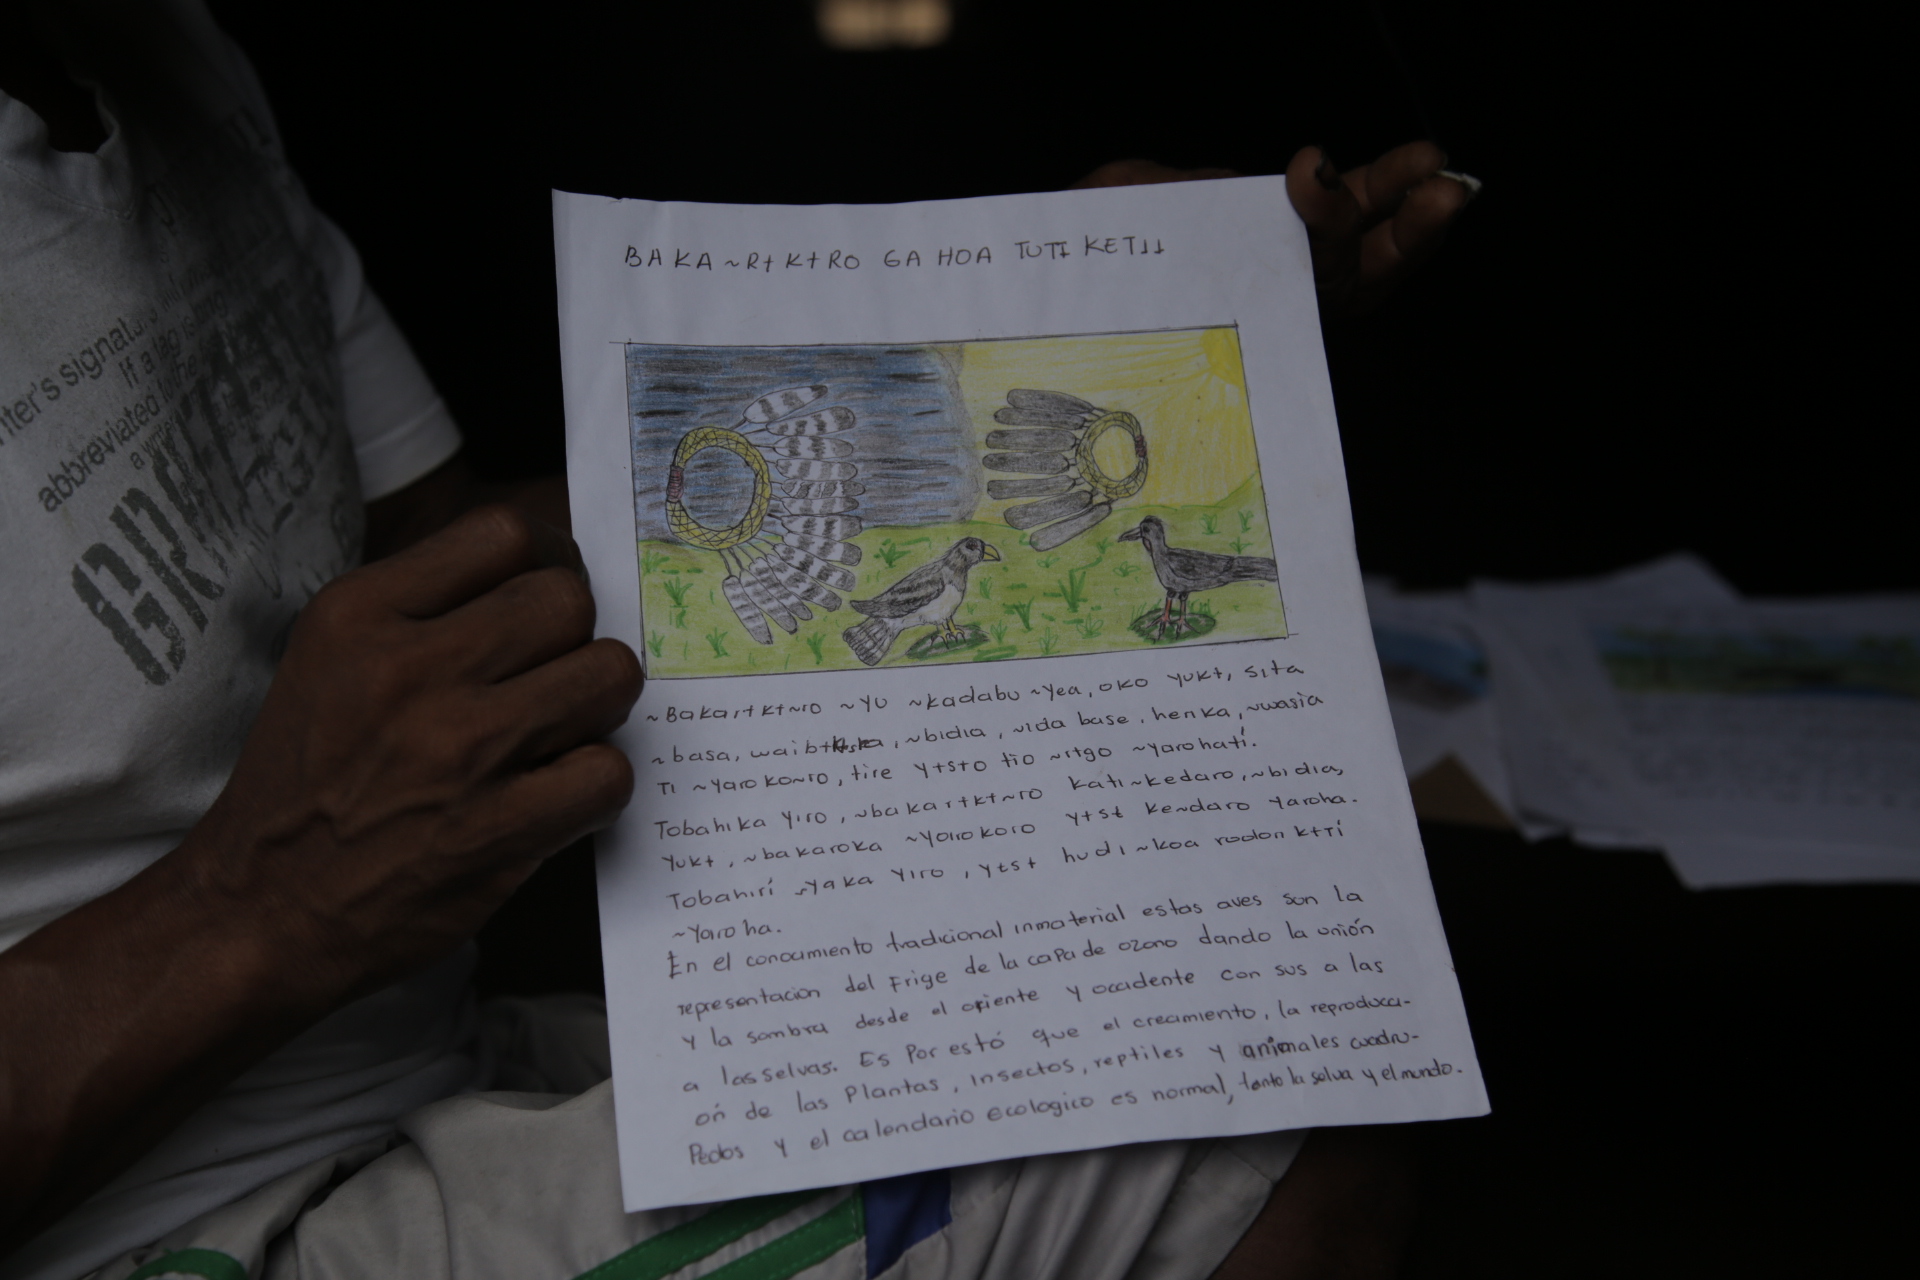 BAKA ~RɨKɨRO GA HOA TUTI KETII
~Bakarɨkɨ~ro ~yu ~kadabu ~yea, oko yukɨ, sita
~basa, waibɨ , ~bidia, ~ida base, henka, ~wasia
Ti ~yaroko~ro, tire yɨsɨo tio ~rɨgo ~yarohatí.
Tobahika yiro, ~bakarɨkɨ~ro kati~kedaro, ~bidia,
yukɨ, ~bakaroka ~yoirokoro yɨsɨ ke~daro yaroha.
Tobahirí ~yaka yiro, yɨsɨ hudi~koa rodon kɨrí
~yaroha.
En el conocimiento tradicional inmaterial estas aves son la
representación del Frige de la capa de ozono dando la unión
y la sombra desde el oriente y occidente con sus a las
a las selvas. Es Por estó que el crecimiento, la reproducci-
ón de las Plantas, insectos, reptiles y animales cuadru-
Pedos y el calendario ecologico es normal, tanto la selva y el mundo.
riter's signat
If a
abbreviated